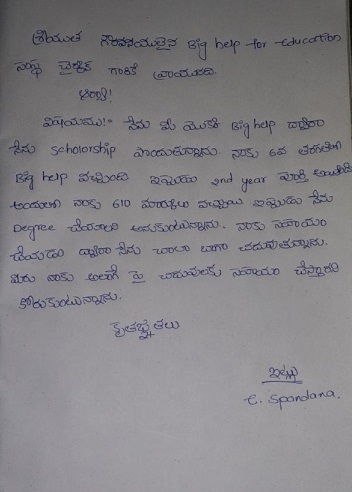 శ్రీయుత గౌరవనీయులైన Big help for education
సంస్థ డైరెక్టర్ గారికి వ్రాయునది.
ఆర్యా!
విషయము:- నేను మీ యొక్క Big help ద్వారా
నేను Scholorship పొందుతున్నాను. నాకు 6వ తరగతిలో
Big help వచ్చింది ఇప్పుడు 2nd year పూర్తి అయినది
అందులో నాకు 610 మార్కులు వచ్చాయి ఇప్పుడు నేను
Degree చేయాలని అనుకుంటున్నాను. నాకు సహాయం
చేయడం ద్వారా నేను చాలా బాగా చదువుతున్నాను.
మీరు నాకు అలాగే పై చదువులకు సహాయం చేస్తారని
కోరుకుంటున్నాను.
కృతజ్ఞతలు
ఇట్లు
E. Spandana.